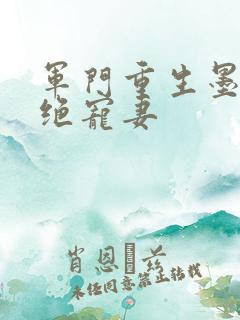 軍門重生墨
绝寵妻
肖恩 兹
未经同意禁止转载